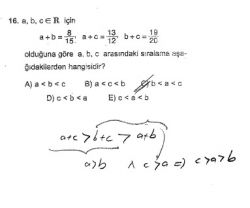 16. a, b, c ∈ R için
a+b = 8/15, a+c = 13/12, b+c = 19/20
olduğuna göre a, b, c arasındaki sıralama aşa-
ğıdakilerden hangisidir?
A) a<b<c B) a<c<b C) b<a<c
D) c<b<a E) c<a<b
a+c > b+c > a+b
a>b ∧ c>a => c>a>b